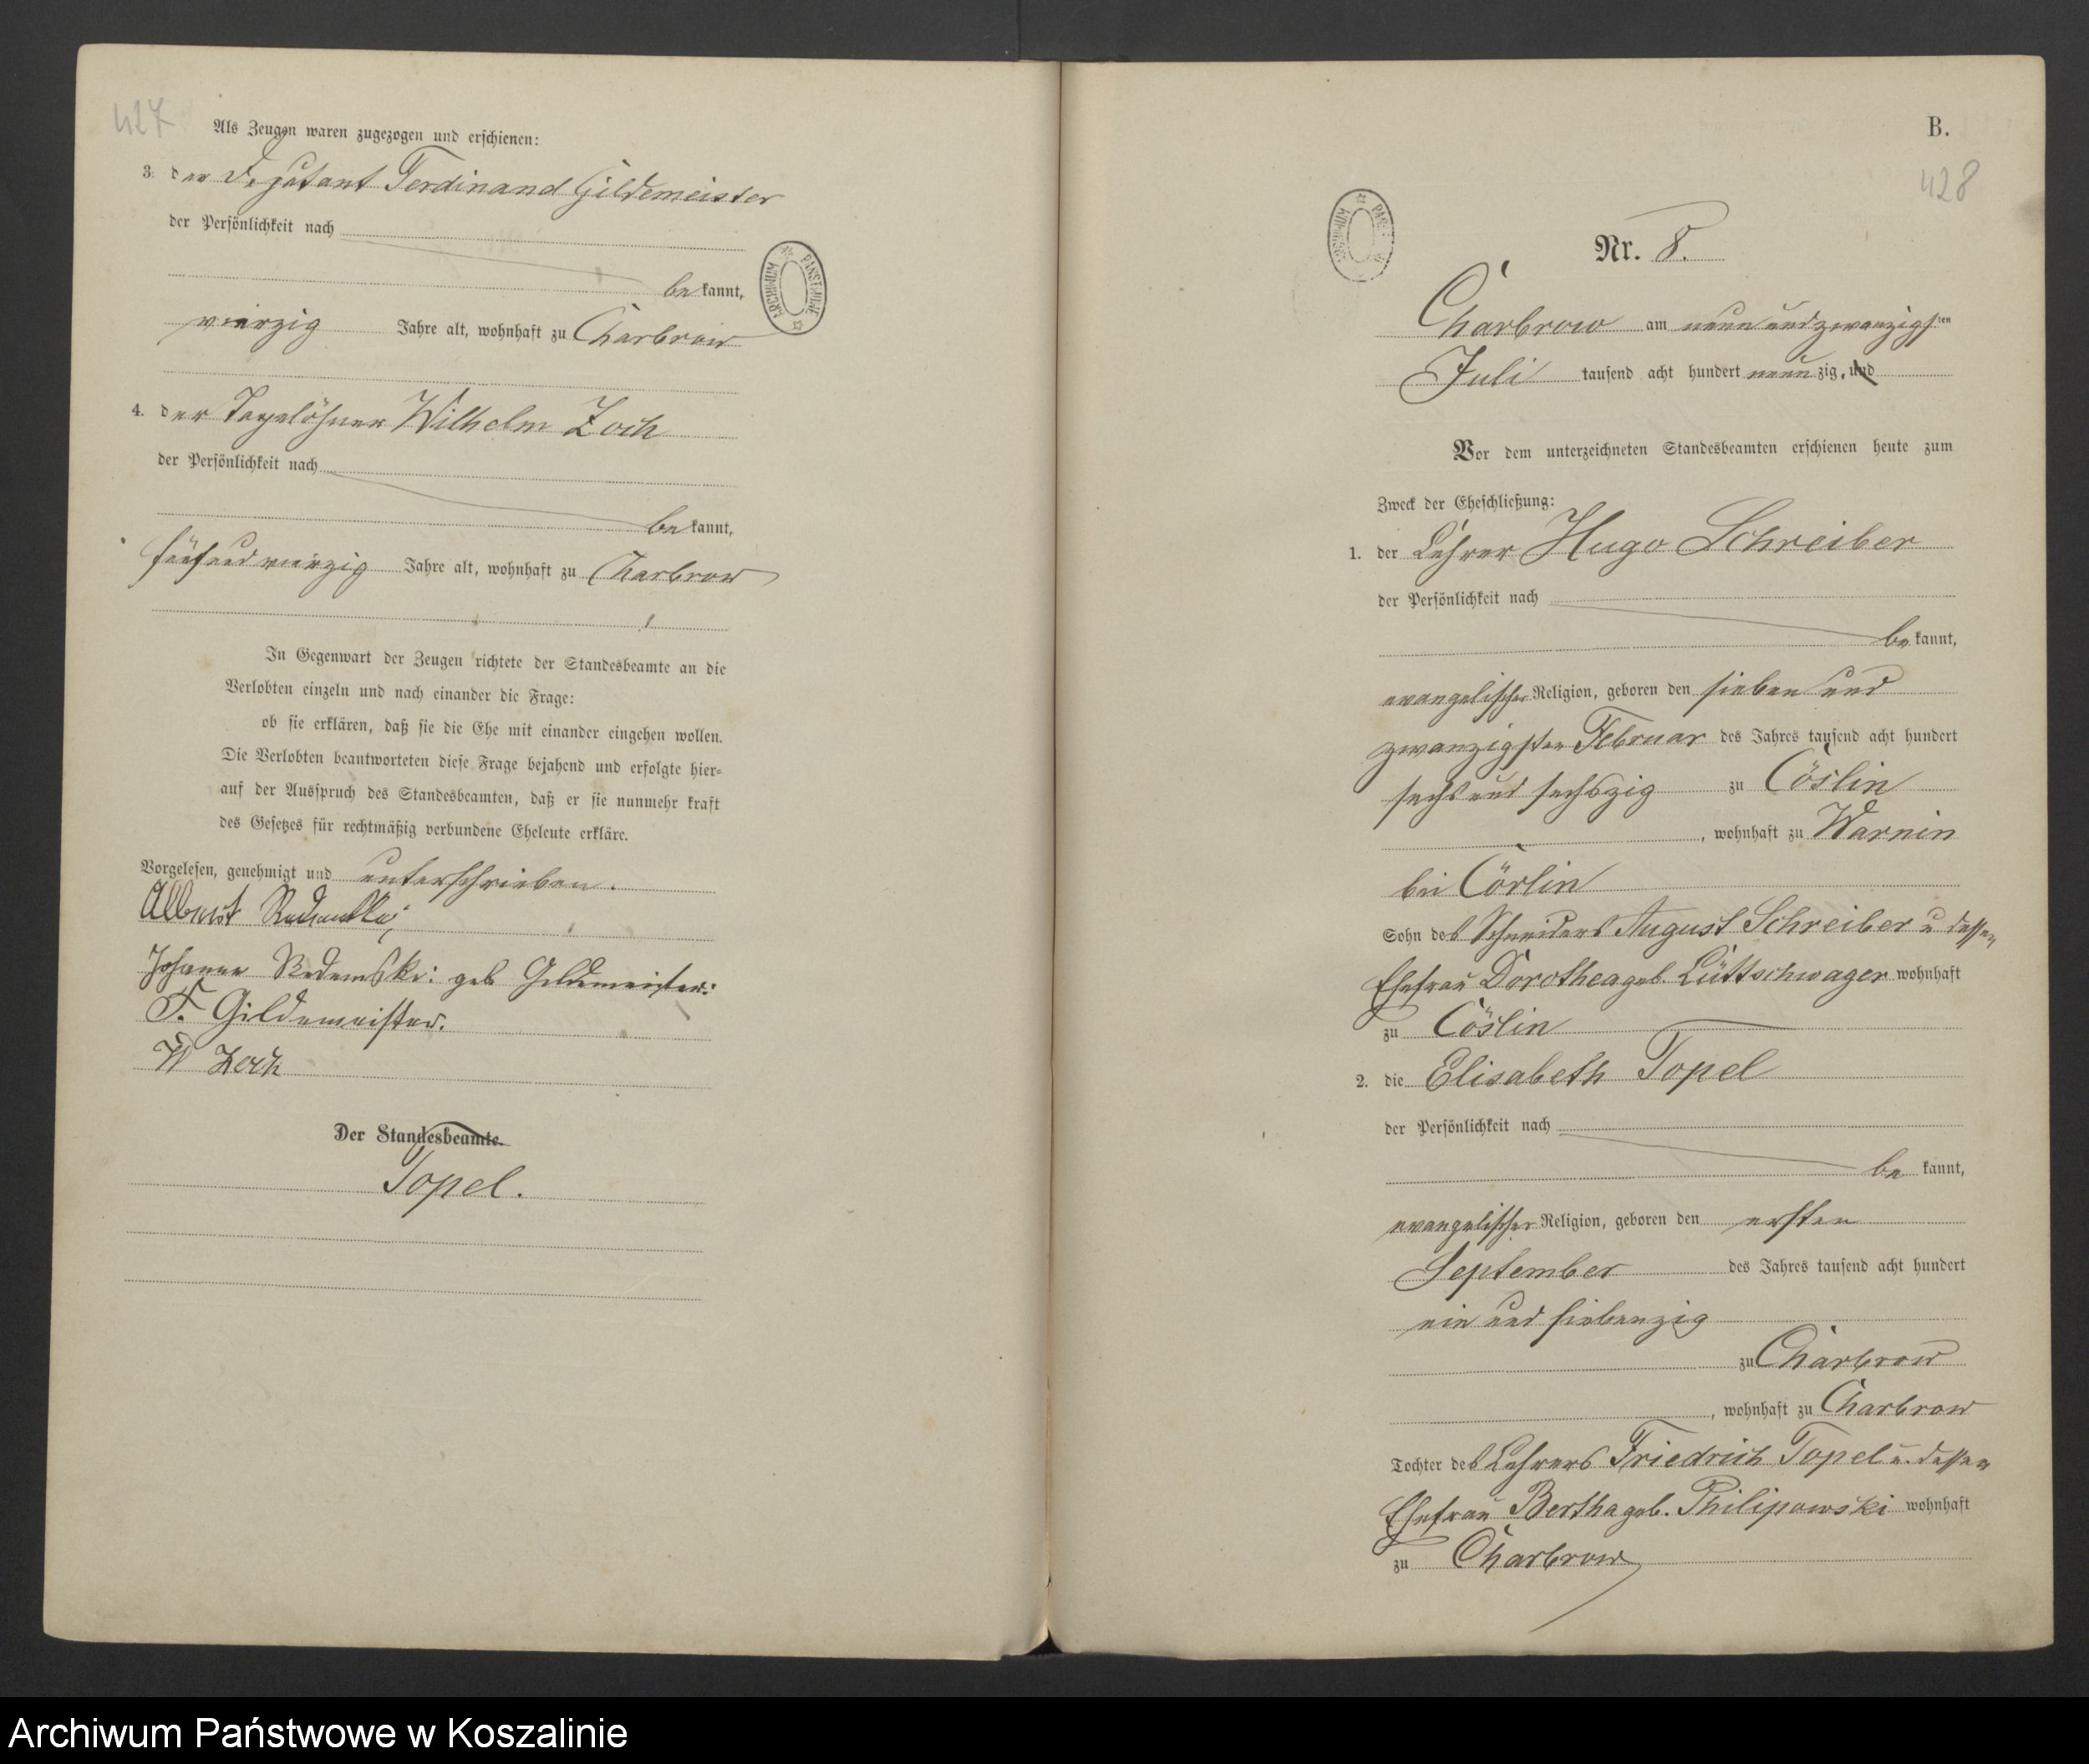 427
Als Zeugen waren zugezogen und erschienen:
3. der Deputant Ferdinand Gildemeister
der Persönlichkeit nach
be kannt,
vierzig Jahre alt, wohnhaft zu Charbrow
4. der Tagelöhner Wilhelm Zoch
der Persönlichkeit nach
be kannt,
fünfundvierzig Jahre alt, wohnhaft zu Charbrow
In Gegenwart der Zeugen richtete der Standesbeamte an die
Verlobten einzeln und nach einander die Frage:
ob sie erklären, daß sie die Ehe mit einander eingehen wollen.
Die Verlobten beantworteten diese Frage bejahend und erfolgte hier-
auf der Ausspruch des Standesbeamten, daß er sie nunmehr kraft
des Gesetzes für rechtmäßig verbundene Eheleute erkläre.
Vorgelesen, genehmigt und unterschrieben.
Albert
Johanne geb Gildemeister
F. Gildemeister.
W Zoch
Der Standesbeamte.
Topel.
ARCHIWUM PAŃSTWOWE
B.
428
Nr. 8.
Charbrow am neunundzwanzigsten
Juli tausend acht hundert neunzig, und
Vor dem unterzeichneten Standesbeamten erschienen heute zum
Zweck der Eheschließung:
1. der Lehrer Hugo Schreiber
der Persönlichkeit nach
be kannt,
evangelischer Religion, geboren den sieben und
zwanzigsten Februar des Jahres tausend acht hundert
sechs und sechszig zu Cöslin
, wohnhaft zu Warnin
bei Cörlin
Sohn des Schneiders August Schreiber u dessen
Ehefrau Dorothea geb. Lüttschwager wohnhaft
zu Cöslin
2. die Elisabeth Topel
der Persönlichkeit nach
be kannt,
evangelischer Religion, geboren den ersten
September des Jahres tausend acht hundert
ein und siebenzig
zu Charbrow
, wohnhaft zu Charbrow
Tochter des Lehrers Friedrich Topel u. dessen
Ehefrau Bertha geb. Philipowski wohnhaft
zu Charbrow
Archiwum Państwowe w Koszalinie